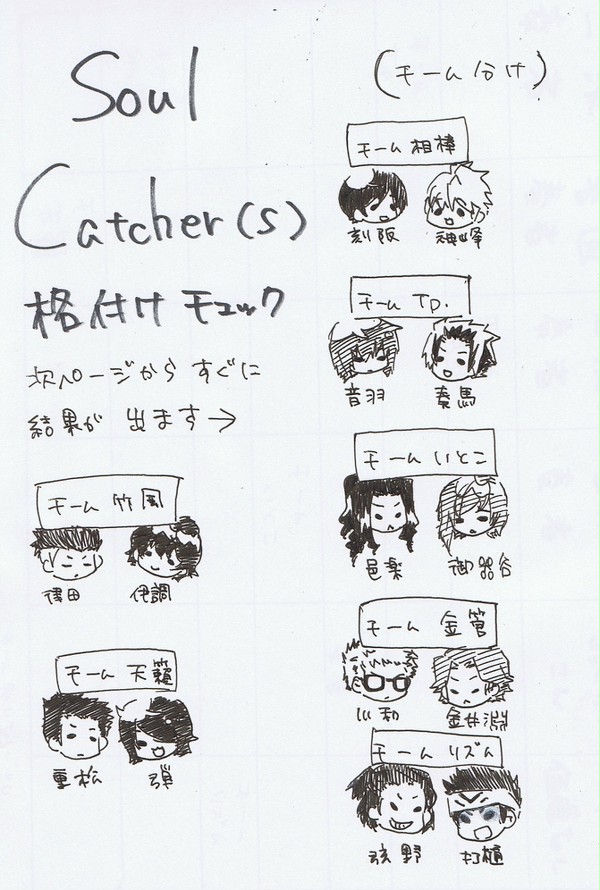 Soul
Catcher(s)
格付けチェック
次ページから すぐに
結果が 出ます→
チーム 竹風
伊調
チーム 天籟
重松
弾
(チーム分け)
チーム 相棒
刻阪
神峰
チーム Tp.
音羽
奏馬
チーム いとこ
邑楽
御器谷
チーム 金管
川和
金井淵
チーム リズム
弦野
打樋